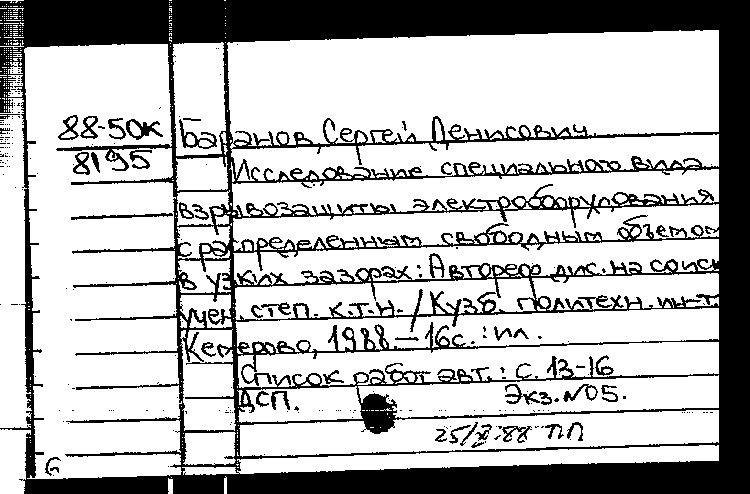 88-50к
8195
Баранов, Сергей Денисович.
Исследование специального вида
взрывозащиты электрооборудования
с распределенным свободным объемом
в узких зазорах: Автореф. дис. на соиск
учен. степ. к.т.н. / Кузб. политехн. ин-т.
Кемерово, 1988 — 16с. : ил.
Список работ авт.: с. 13-16
ДСП. Экз. №05.
25/X-88 ПП
6